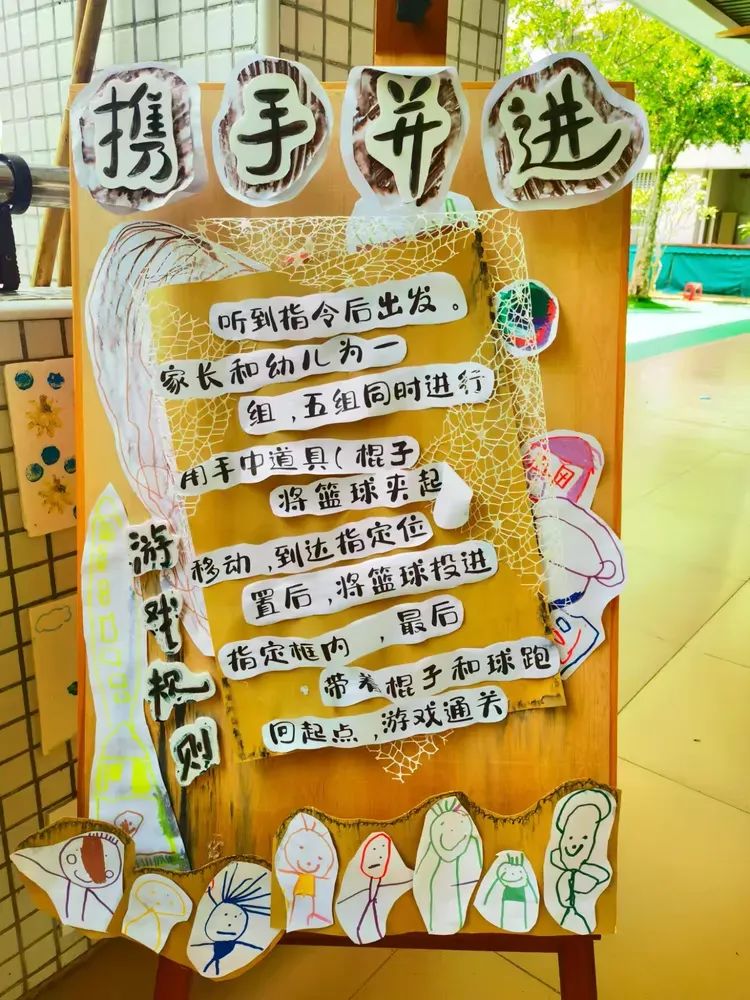 携手并进
听到指令后出发。
家长和幼儿为一
组,五组同时进行
用手中道具(棍子
将篮球夹起
移动,到达指定位
置后,将篮球投进
指定框内,最后
带着棍子和球跑
回起点,游戏通关
游戏规则